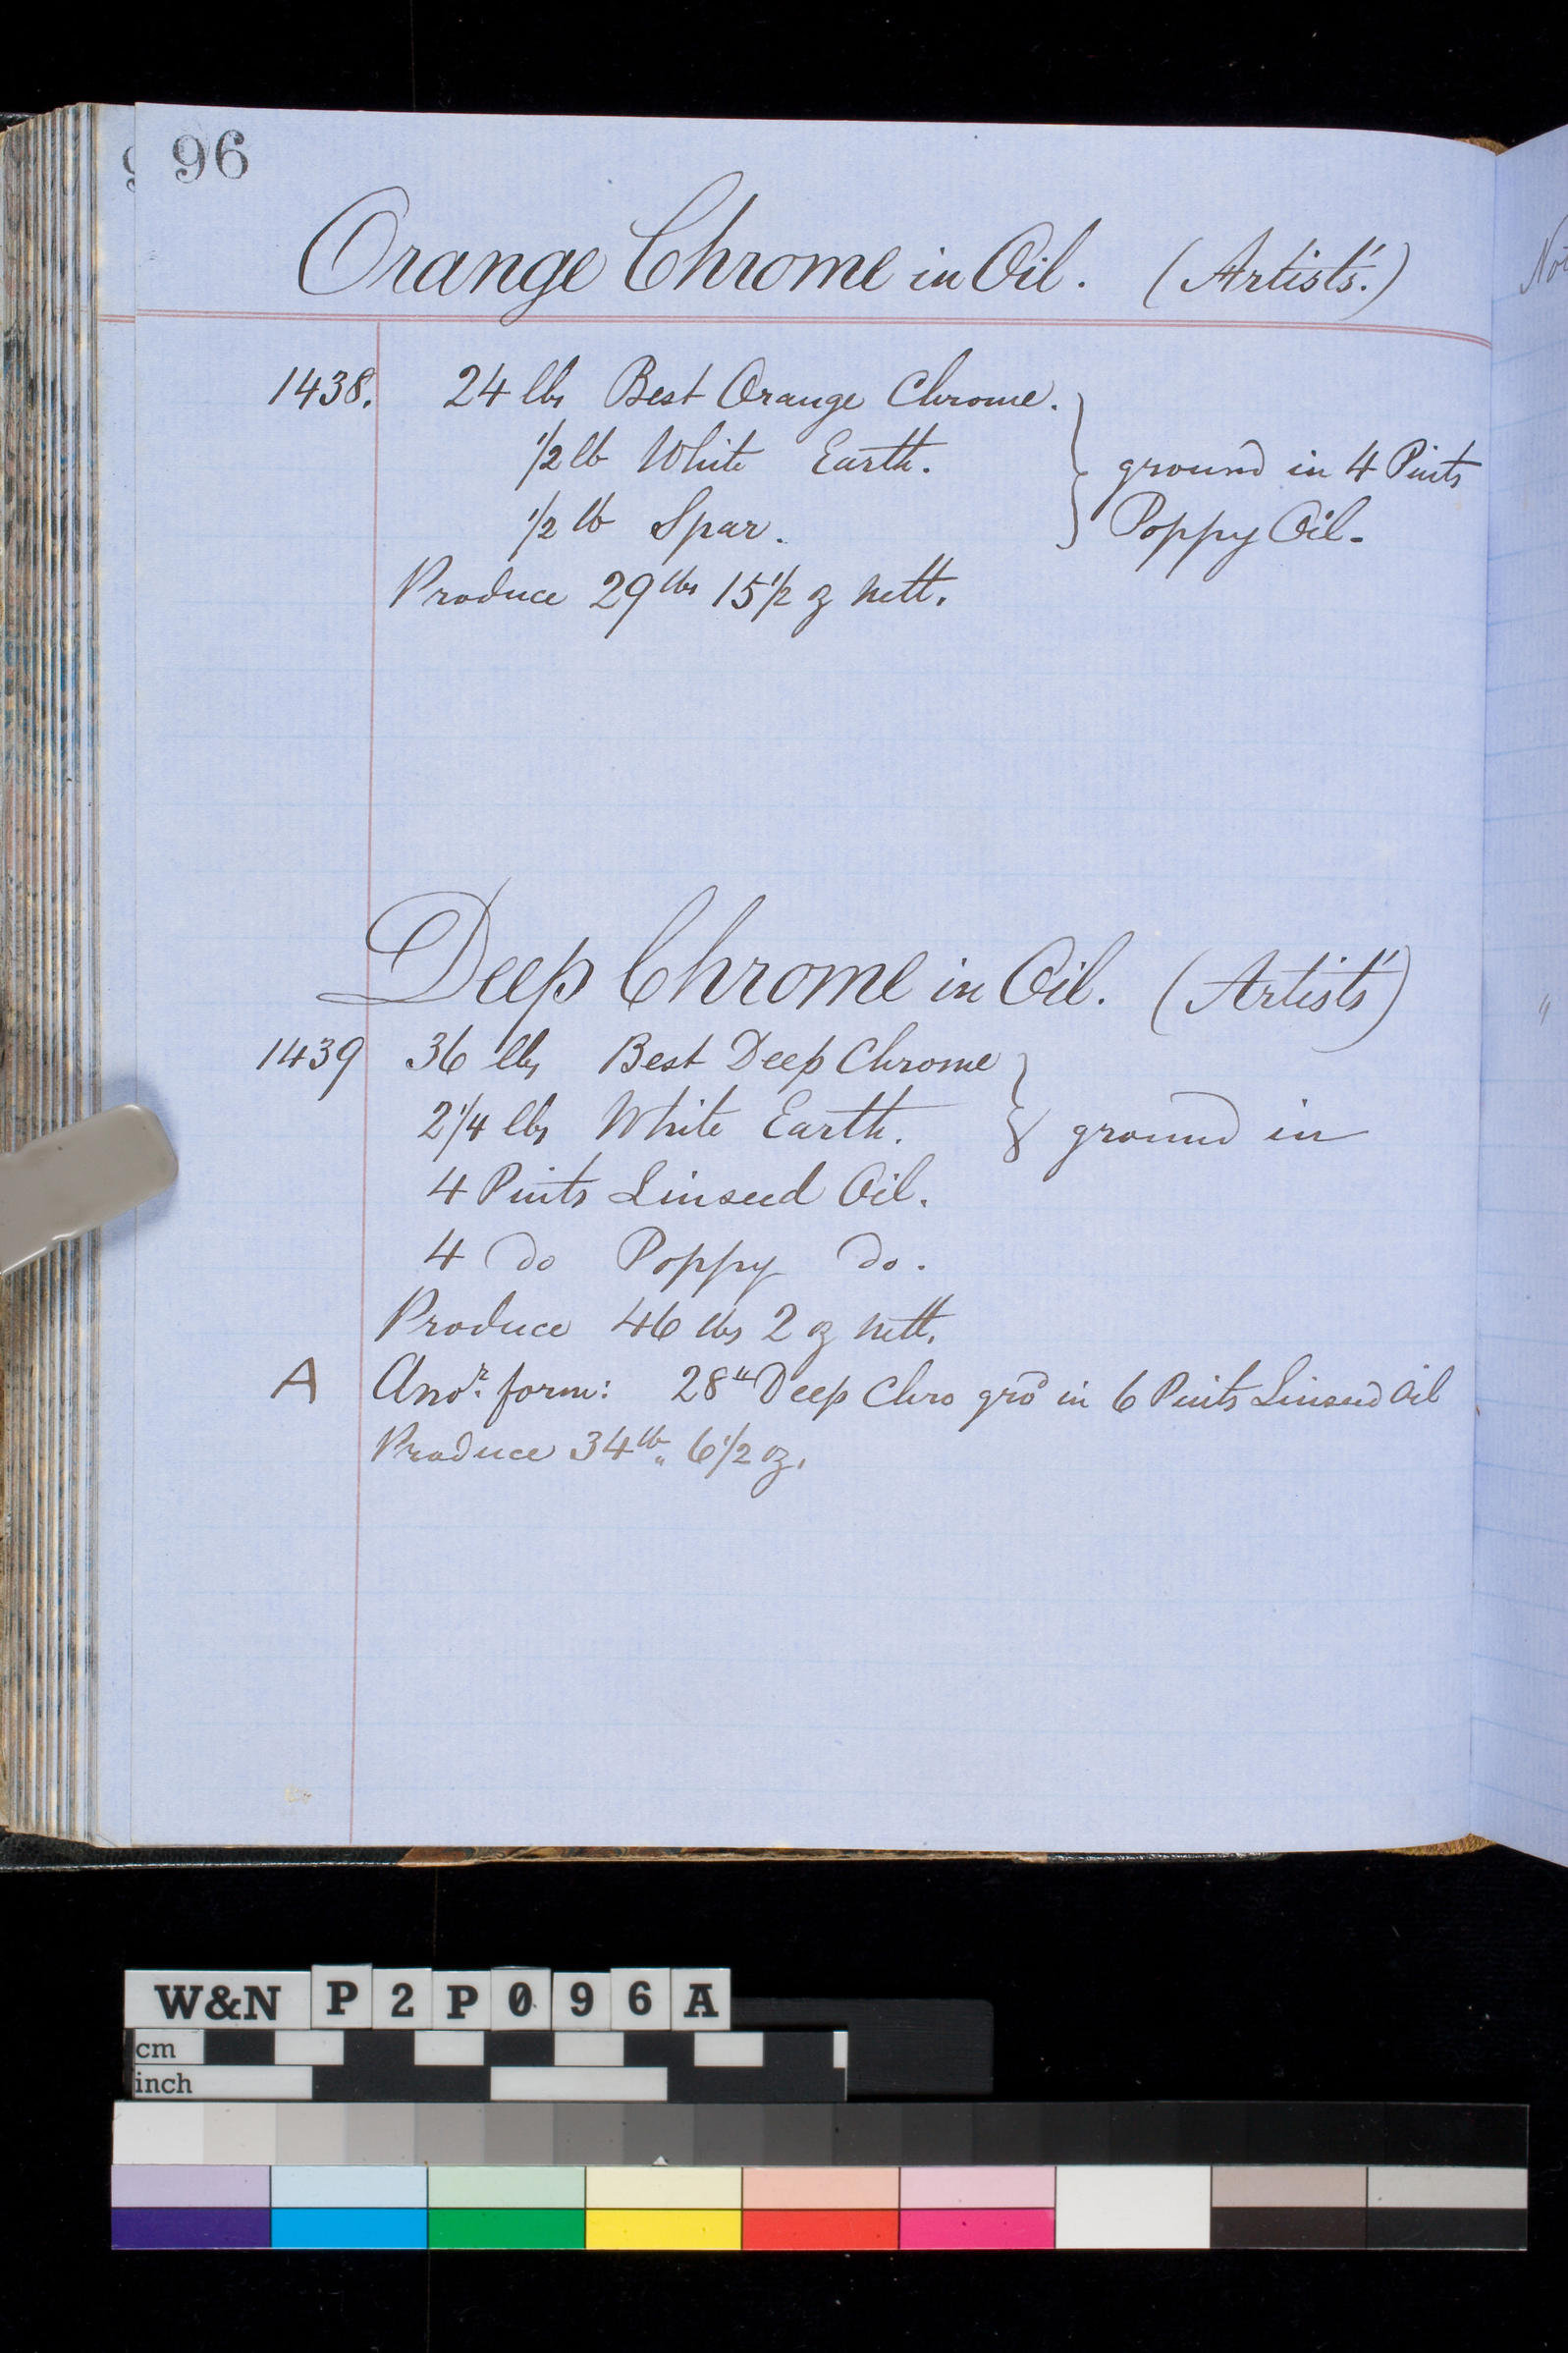 96
Orange Chrome in Oil. (Artists'.)
1438. 24 lbs Best Orange Chrome.
1/2 lb White Earth. } ground in 4 Pints
1/2 lb Spar. Poppy Oil.
Produce 29 lbs 15 1/2 oz nett.
Deep Chrome in Oil. (Artists')
1439 36 lbs Best Deep Chrome
2 1/4 lbs White Earth. } ground in
4 Pints Linseed Oil.
4 do Poppy do.
Produce 46 lbs 2 oz nett.
A Anor. form: 28 " Deep Chro grd in 6 Pints Linseed Oil
Produce 34 lb " 6 1/2 oz.
W&N P2P096A
cm
inch